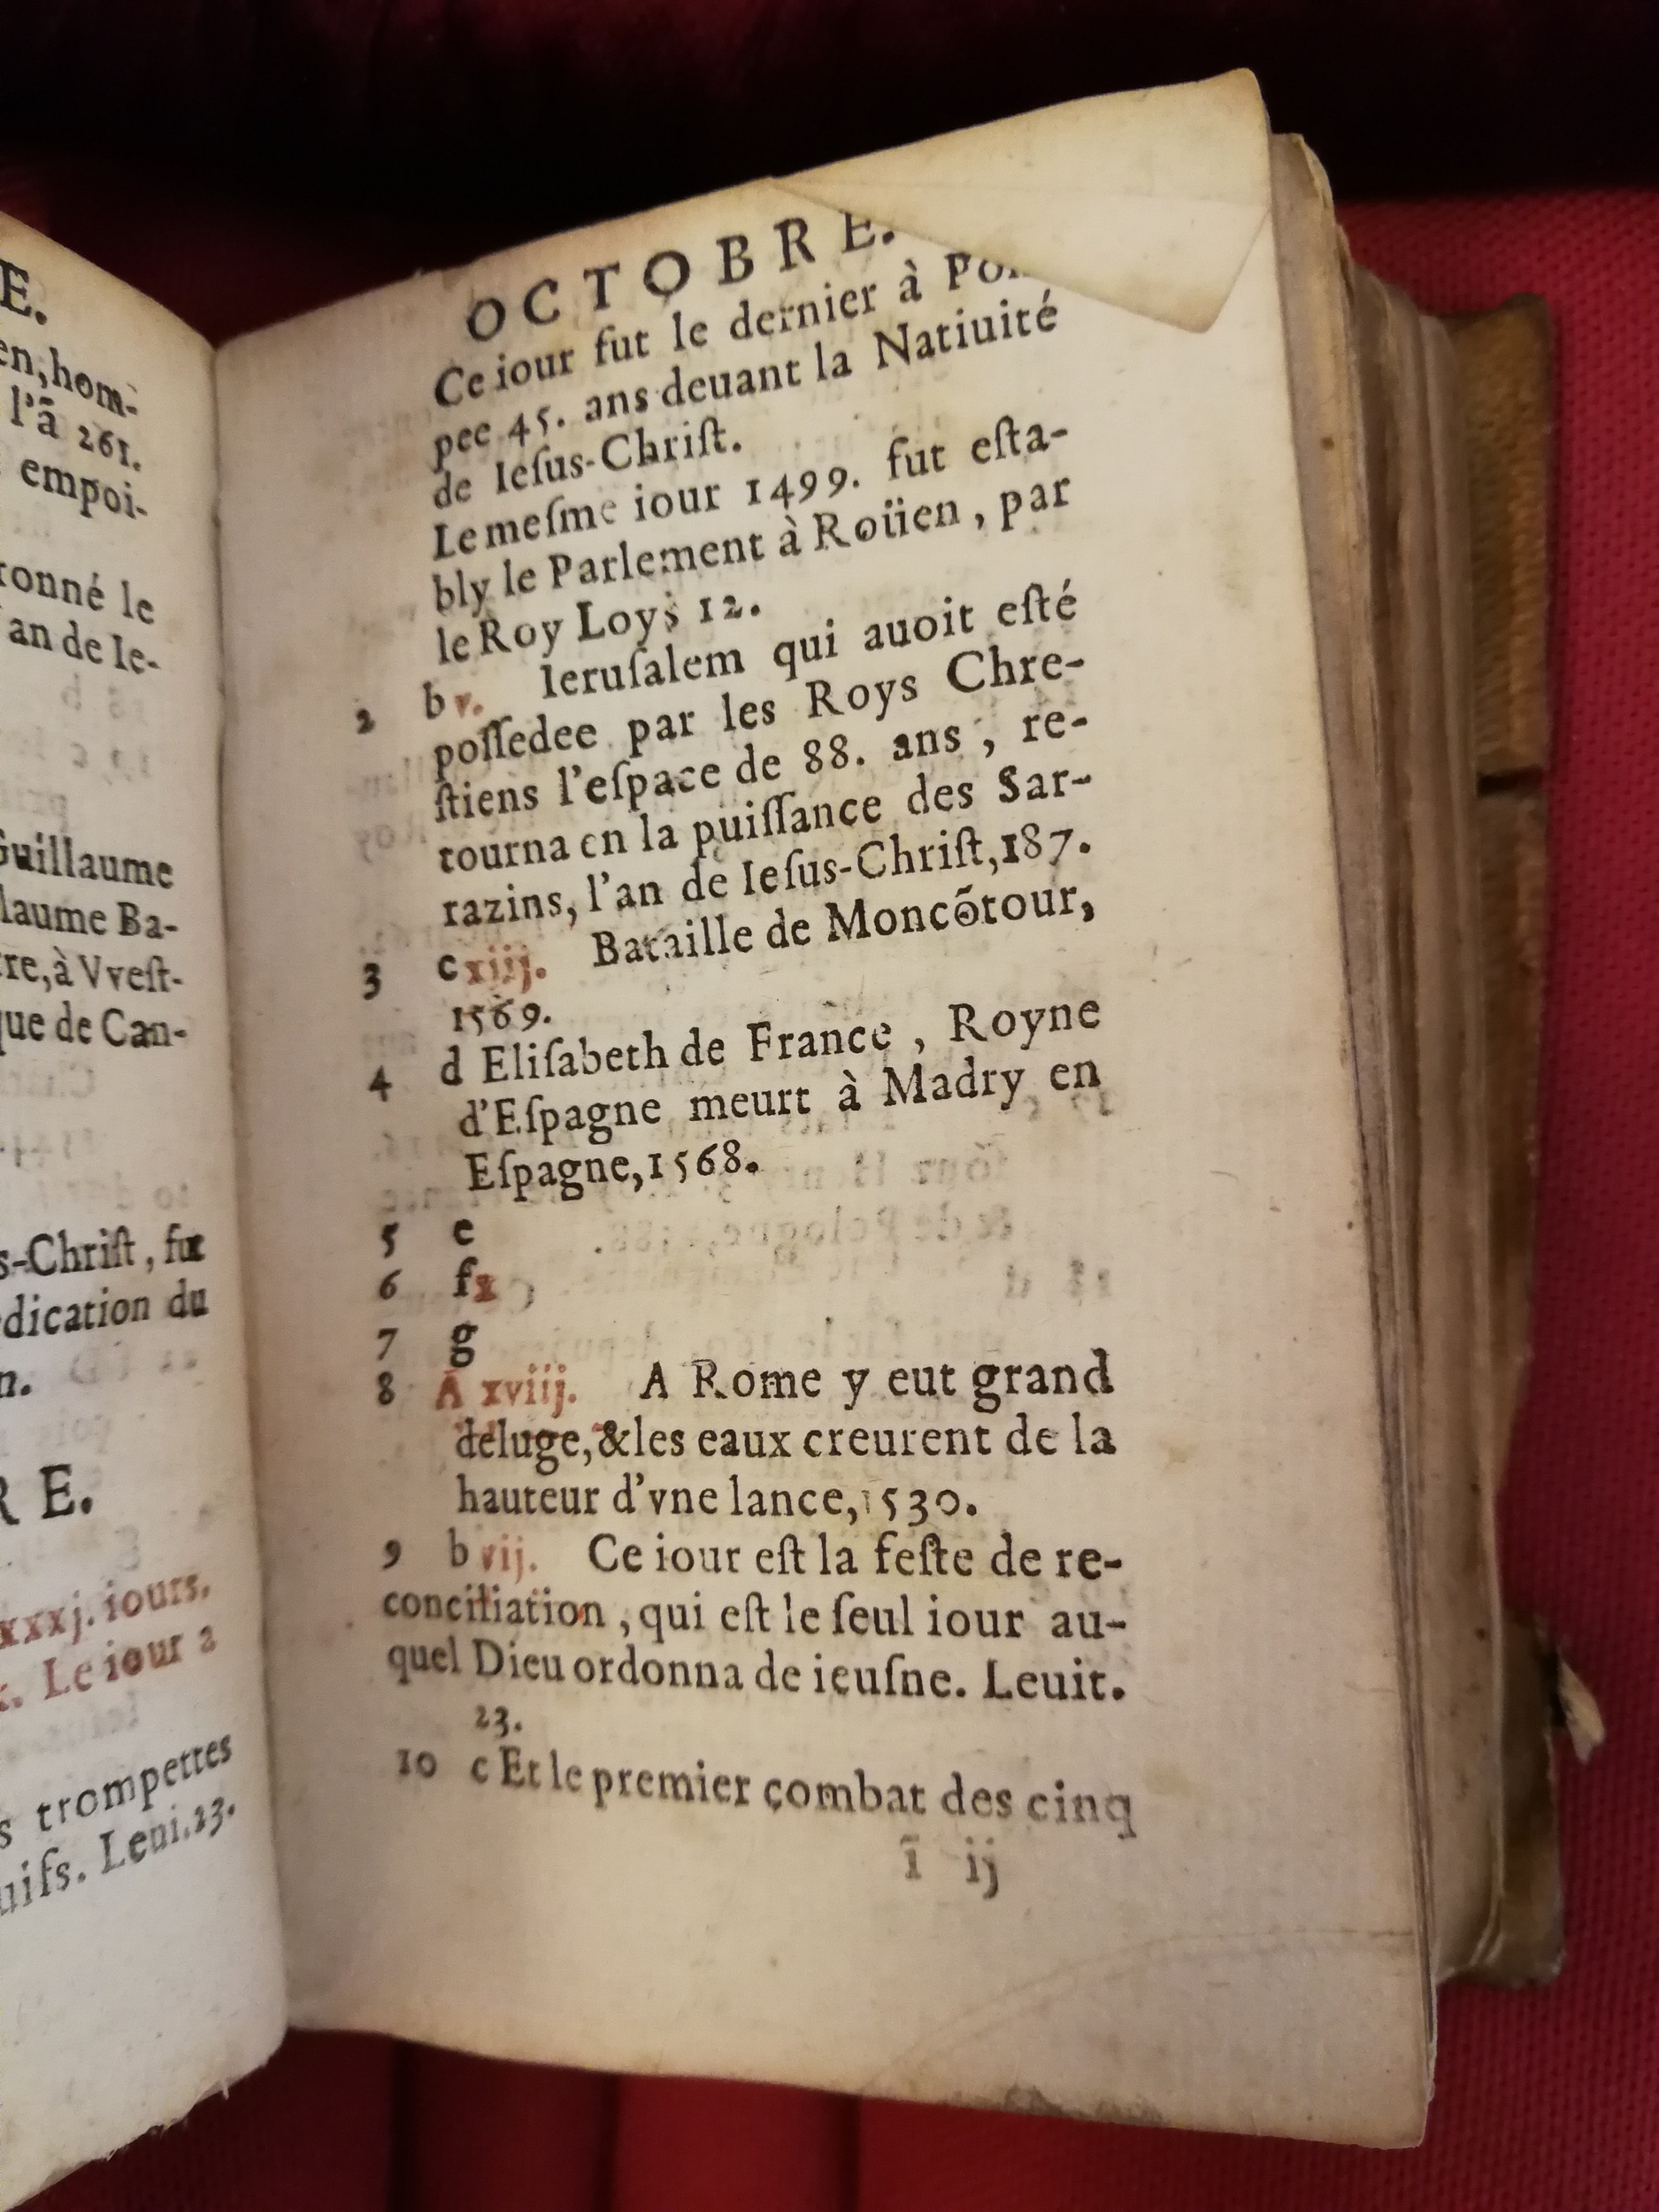 E.
en, hom-
l'ã 261.
empoi-
ronné le
an de Ie-
Guillaume
laume Ba-
re, à Vvest-
que de Can-
s-Chriſt, fut
dication du
n.
R E.
xxxj. iours.
Le iour a
s trompettes
uifs. Leui. 23.
OCTOBRE.
Ce iour fut le dernier à Pom
pee 45. ans deuant la Natiuité
de Ieſus-Chriſt.
Le meſme iour 1499. fut eſta-
bly le Parlement à Roüen, par
le Roy Loys 12.
2 b v. Ieruſalem qui auoit eſté
poſſedee par les Roys Chre-
ſtiens l'eſpace de 88. ans, re-
tourna en la puiſſance des Sar-
razins, l'an de Ieſus-Chriſt, 187.
3 c xiij. Bataille de Moncõtour,
1569.
4 d Eliſabeth de France, Royne
d'Eſpagne meurt à Madry en
Eſpagne, 1568.
5 e
6 f x
7 g
8 A xviij. A Rome y eut grand
deluge, & les eaux creurent de la
hauteur d'vne lance, 1530.
9 b vij. Ce iour eſt la feſte de re-
conciliation, qui eſt le ſeul iour au-
quel Dieu ordonna de ieuſne. Leuit.
23.
10 c Et le premier combat des cinq
ĩ ij